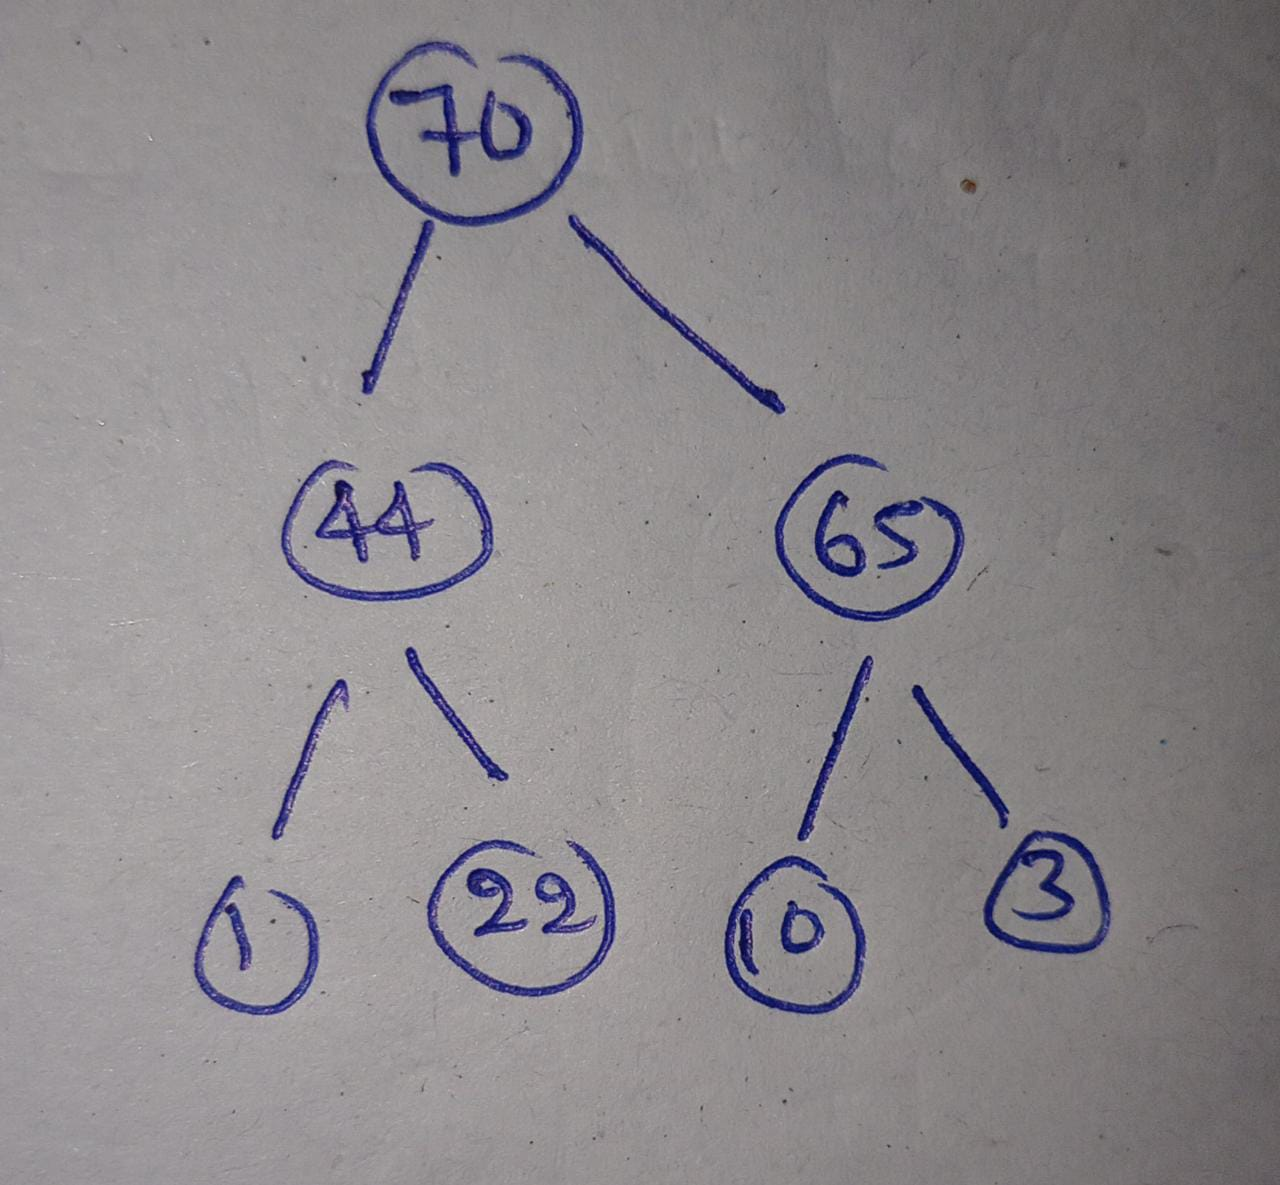 70
44 65
1 22 10 3